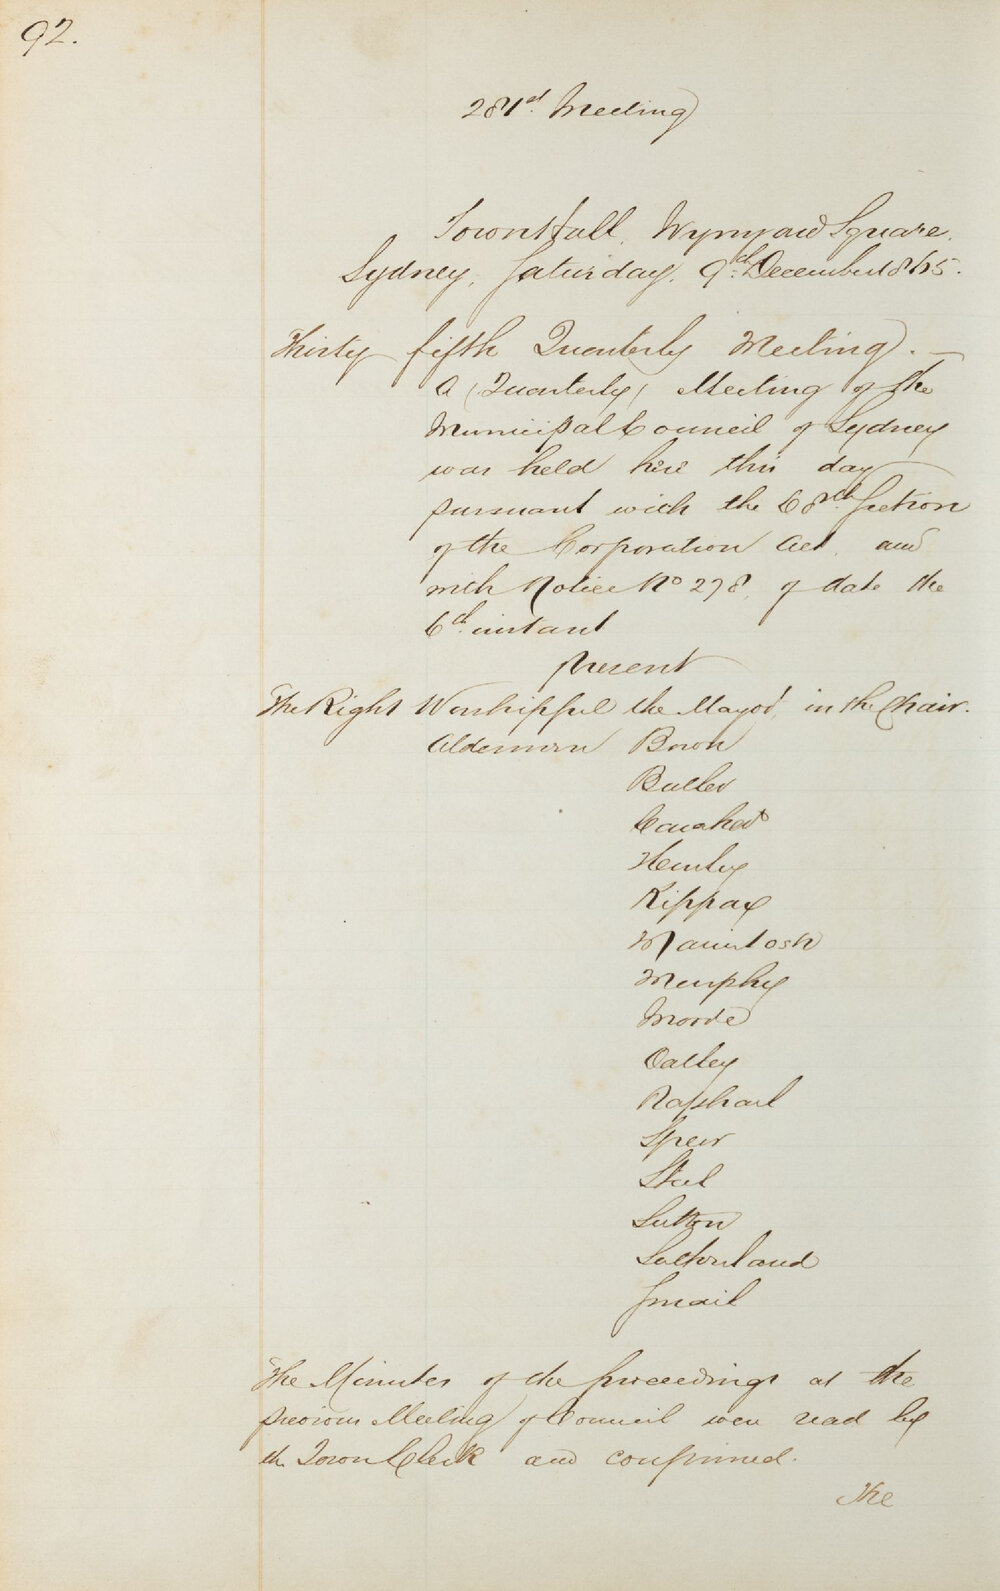 92.
281st. Meeting
Town Hall, Wynyard Square.
Sydney, Saturday, 9th. December 1865.
Thirty fifth Quarterly Meeting. —
A (Quarterly) Meeting of the
Municipal Council of Sydney
was held here this day
pursuant with the 68th. Section
of the Corporation Act, and
with Notice No 278, of date the
6th. instant
Present
The Right Worshipful the Mayor, in the Chair.
Aldermen Bown
Butler
Caraher
Henley
Kippax
Macintosh
Murphy
Moore
Oatley
Raphael
Speer
Steel
Sutton
Sutherland
Smail
The Minutes of the proceedings at the
previous Meeting of Council were read by
the Town Clerk and confirmed.
The